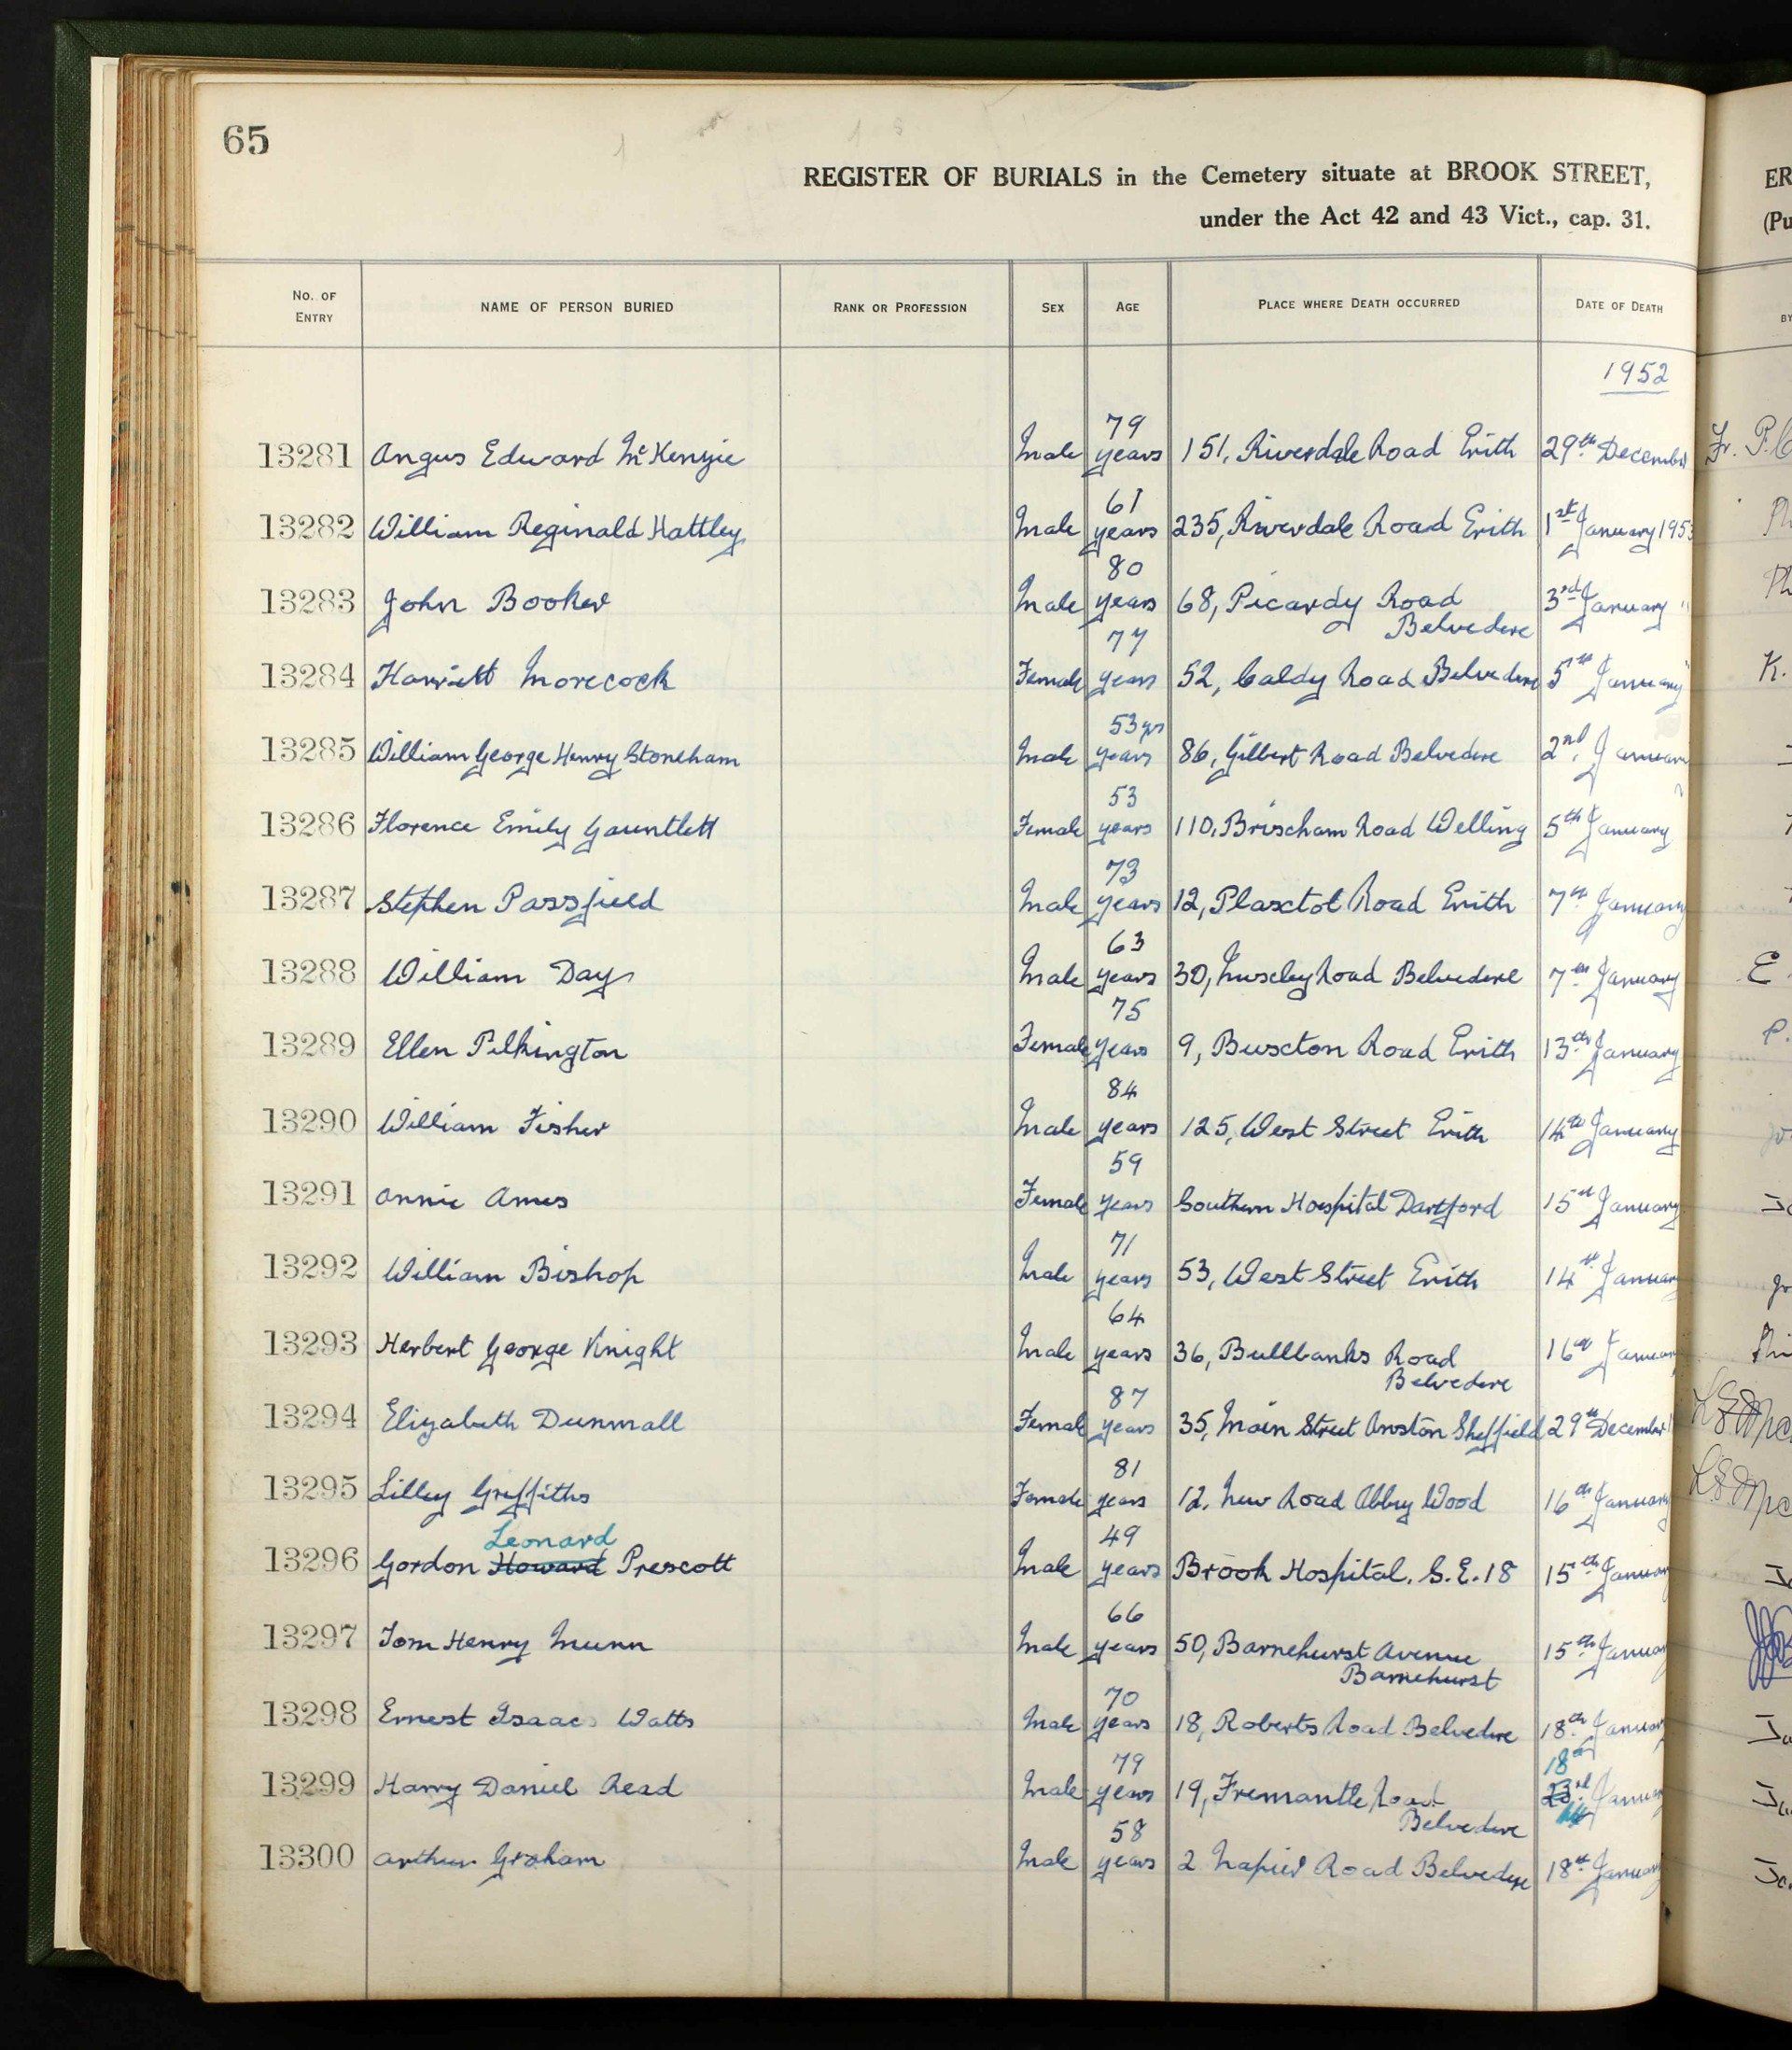 65
REGISTER OF BURIALS in the Cemetery situate at BROOK STREET,
under the Act 42 and 43 Vict., cap. 31.
No. of Entry NAME OF PERSON BURIED RANK OR PROFESSION SEX AGE PLACE WHERE DEATH OCCURRED DATE OF DEATH
1952
13281 Angus Edward McKenzie Male 79 years 151, Riverdale Road Erith 29th December
13282 William Reginald Hattley Male 61 years 235, Riverdale Road Erith 1st January 1953
13283 John Booker Male 80 years 68, Picardy Road Belvedere 3rd January "
13284 Harriett Morecock Female 77 years 52, Caldy Road Belvedere 5th January "
13285 William George Henry Stoneham Male 53 yrs years 86, Gilbert Road Belvedere 2nd January
13286 Florence Emily Gauntlett Female 53 years 110, Brixham Road Welling 5th January
13287 Stephen Passfield Male 73 years 12, Plaxtol Road Erith 7th January
13288 William Day Male 63 years 30, Road Belvedere 7th January
13289 Ellen Pilkington Female 75 years 9, Buxton Road Erith 13th January
13290 William Fisher Male 84 years 125, West Street Erith 14th January
13291 Annie Ames Female 59 years Southern Hospital Dartford 15th January
13292 William Bishop Male 71 years 53, West Street Erith 14th January
13293 Herbert George Knight Male 64 years 36, Bullbanks Road Belvedere 16th January
13294 Elizabeth Dunmall Female 87 years 35, Main Street Anston Sheffield 29th December
13295 Lilley Griffiths Female 81 years 12, New Road Abbey Wood 16th January
Leonard
13296 Gordon Howard Prescott Male 49 years Brook Hospital. S.E.18 15th January
13297 Tom Henry Munn Male 66 years 50, Barnehurst Avenue Barnehurst 15th January
13298 Ernest Isaac Watts Male 70 years 18, Roberts Road Belvedere 18th January
18th
13299 Harry Daniel Read Male 79 years 19, Fremantle Road Belvedere 23rd January
13300 Arthur Graham Male 58 years 2 Napier Road Belvedere 18th January